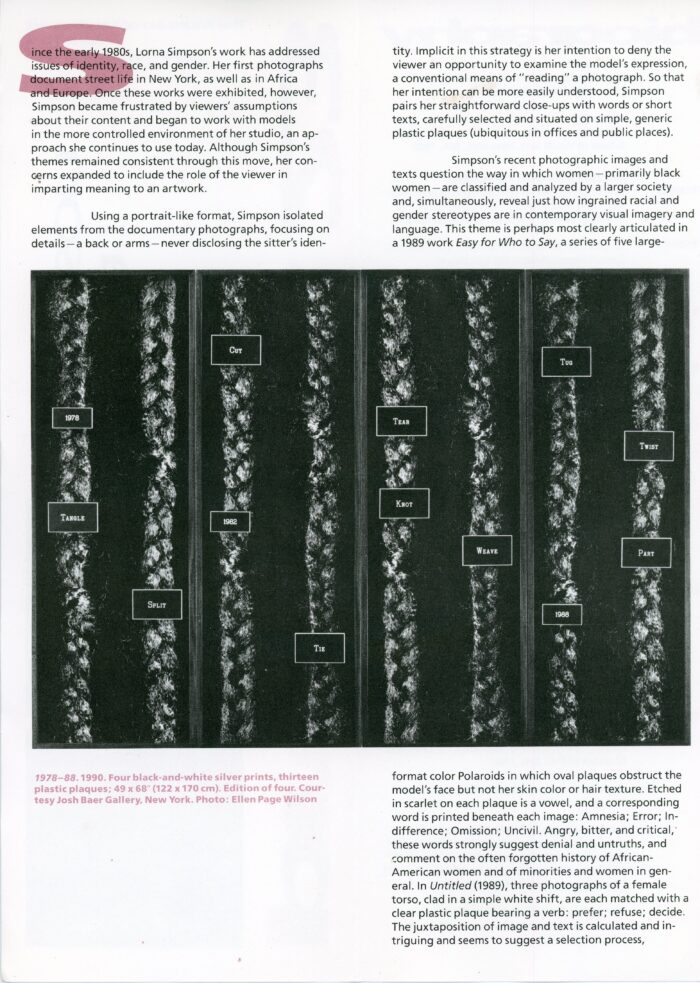 Since the early 1980s, Lorna Simpson's work has addressed
issues of identity, race, and gender. Her first photographs
document street life in New York, as well as in Africa
and Europe. Once these works were exhibited, however,
Simpson became frustrated by viewers' assumptions
about their content and began to work with models
in the more controlled environment of her studio, an ap-
proach she continues to use today. Although Simpson's
themes remained consistent through this move, her con-
cerns expanded to include the role of the viewer in
imparting meaning to an artwork.
Using a portrait-like format, Simpson isolated
elements from the documentary photographs, focusing on
details—a back or arms—never disclosing the sitter's iden-
tity. Implicit in this strategy is her intention to deny the
viewer an opportunity to examine the model's expression,
a conventional means of "reading" a photograph. So that
her intention can be more easily understood, Simpson
pairs her straightforward close-ups with words or short
texts, carefully selected and situated on simple, generic
plastic plaques (ubiquitous in offices and public places).
Simpson's recent photographic images and
texts question the way in which women—primarily black
women—are classified and analyzed by a larger society
and, simultaneously, reveal just how ingrained racial and
gender stereotypes are in contemporary visual imagery and
language. This theme is perhaps most clearly articulated in
a 1989 work Easy for Who to Say, a series of five large-
1978
TANGLE
SPLIT
CUT
1982
TIE
TEAR
KNOT
WEAVE
TUG
1988
TWIST
PART
1978–88. 1990. Four black-and-white silver prints, thirteen
plastic plaques; 49 x 68" (122 x 170 cm). Edition of four. Cour-
tesy Josh Baer Gallery, New York. Photo: Ellen Page Wilson
format color Polaroids in which oval plaques obstruct the
model's face but not her skin color or hair texture. Etched
in scarlet on each plaque is a vowel, and a corresponding
word is printed beneath each image: Amnesia; Error; In-
difference; Omission; Uncivil. Angry, bitter, and critical,
these words strongly suggest denial and untruths, and
comment on the often forgotten history of African-
American women and of minorities and women in gen-
eral. In Untitled (1989), three photographs of a female
torso, clad in a simple white shift, are each matched with a
clear plastic plaque bearing a verb: prefer; refuse; decide.
The juxtaposition of image and text is calculated and in-
triguing and seems to suggest a selection process,